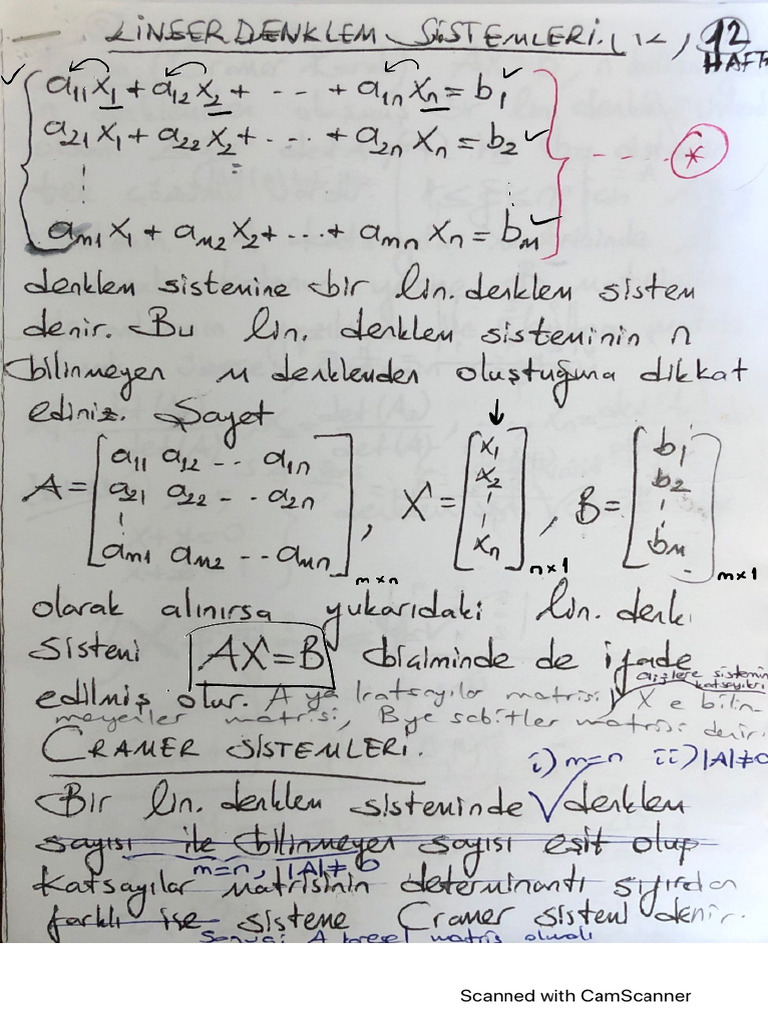 LİNEER DENKLEM SİSTEMLERİ. 12
HAFTA
a11 x1 + a12 x2 + - - - + a1n xn = b1
a21 x1 + a22 x2 + - . . + a2n xn = b2 - - - - *
am1 x1 + am2 x2 + ... + amn xn = bm
denklem sistemine bir lin. denklem sistem
denir. Bu lin. denklem sisteminin n
bilinmeyen m denklemden oluştuğuna dikkat
ediniz. Şayet
A = [a11 a12 -- a1n a21 a22 -- a2n am1 am2 -- amn] m×n , X = [x1 x2 xn] n×1 , B = [b1 b2 bm] m×1
olarak alınırsa yukarıdaki lin. denk.
sistemi AX=B biçiminde de ifade
edilmiş olur. A ya katsayılar matrisi, X e bilin-
aijlere sistemin katsayıları
meyenler matrisi, B ye sabitler matrisi denir.
CRAMER SİSTEMLERİ.
i) m=n ii) |A|≠0
Bir lin. denklem sisteminde denklem
sayısı ile bilinmeyen sayısı eşit olup
m=n, |A|≠0
katsayılar matrisinin determinantı sıfırdan
farklı ise sisteme Cramer sistemi denir.
A karesel matris olmalı
Scanned with CamScanner